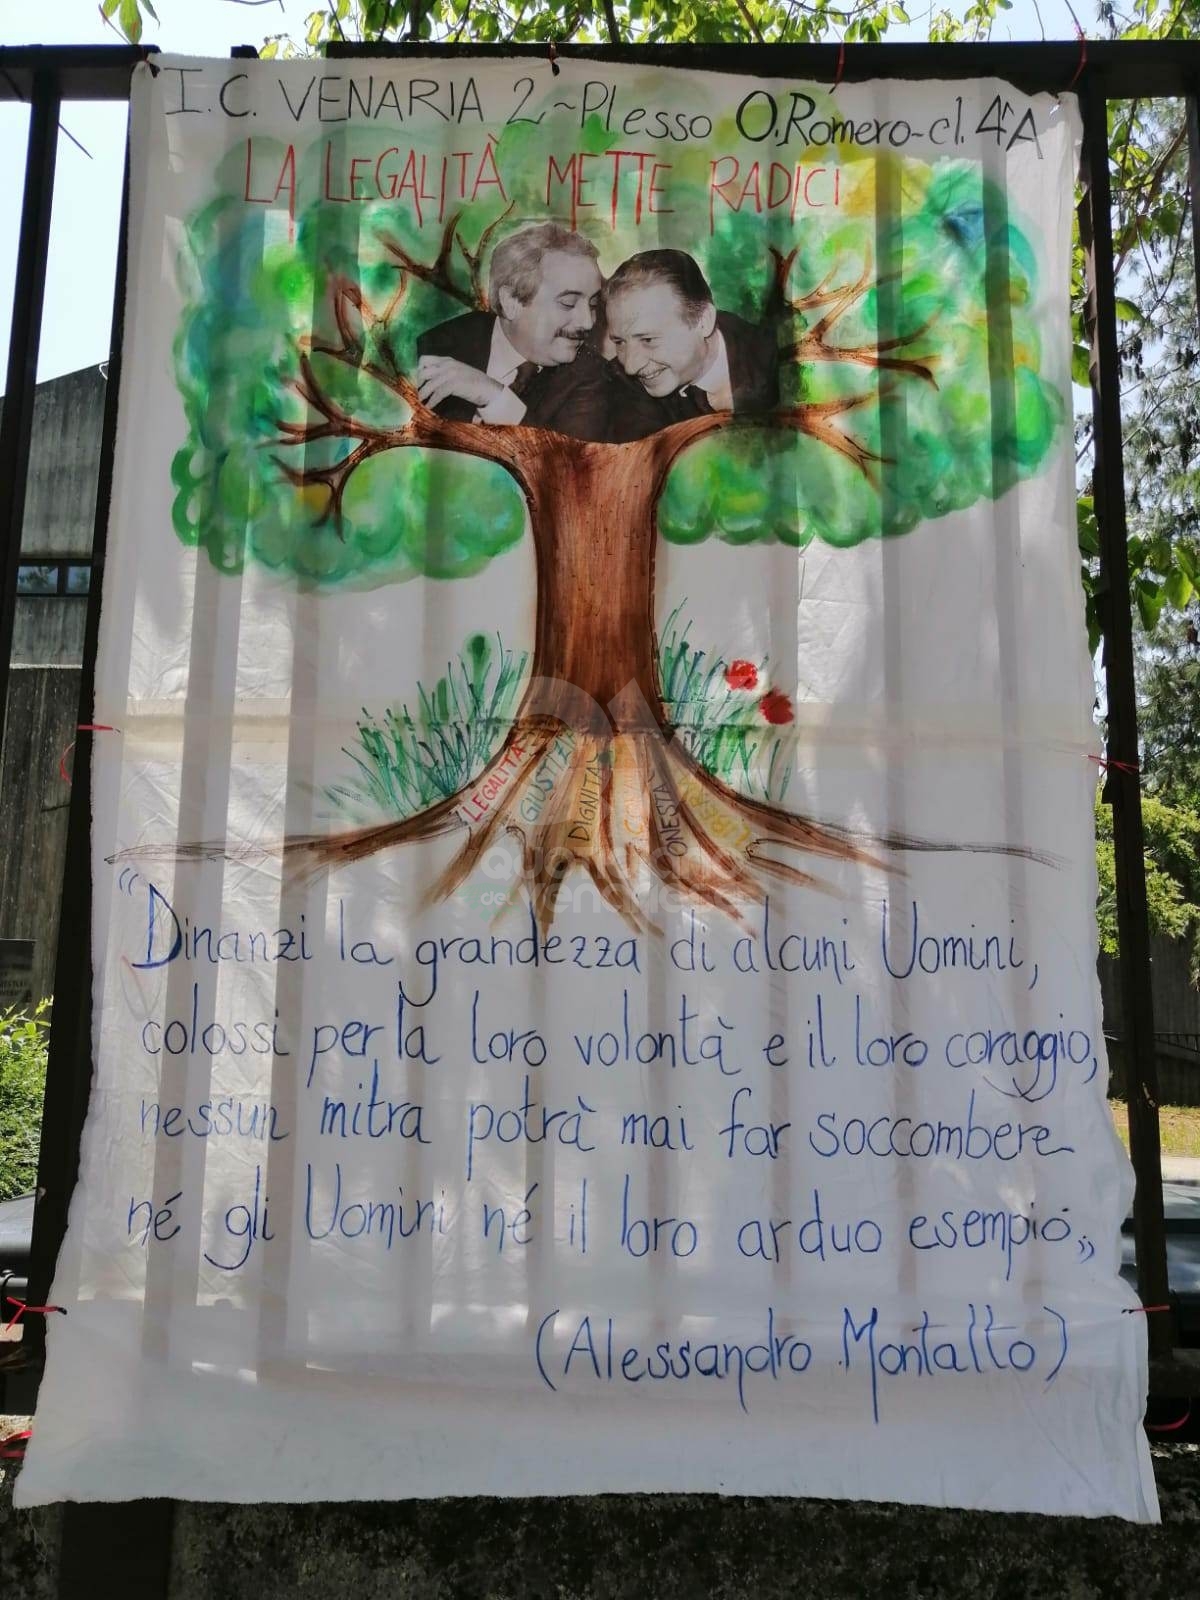 I.C. VENARIA 2 ~ Plesso O.Romero - cl. 4^A
LA LEGALITÀ METTE RADICI
LEGALITÀ
GIUSTIZIA
DIGNITÀ
ONESTÀ
"Dinanzi la grandezza di alcuni Uomini,
colossi per la loro volontà e il loro coraggio,
nessun mitra potrà mai far soccombere
né gli Uomini né il loro arduo esempio."
(Alessandro Montalto)
Quotidiano
del venariese